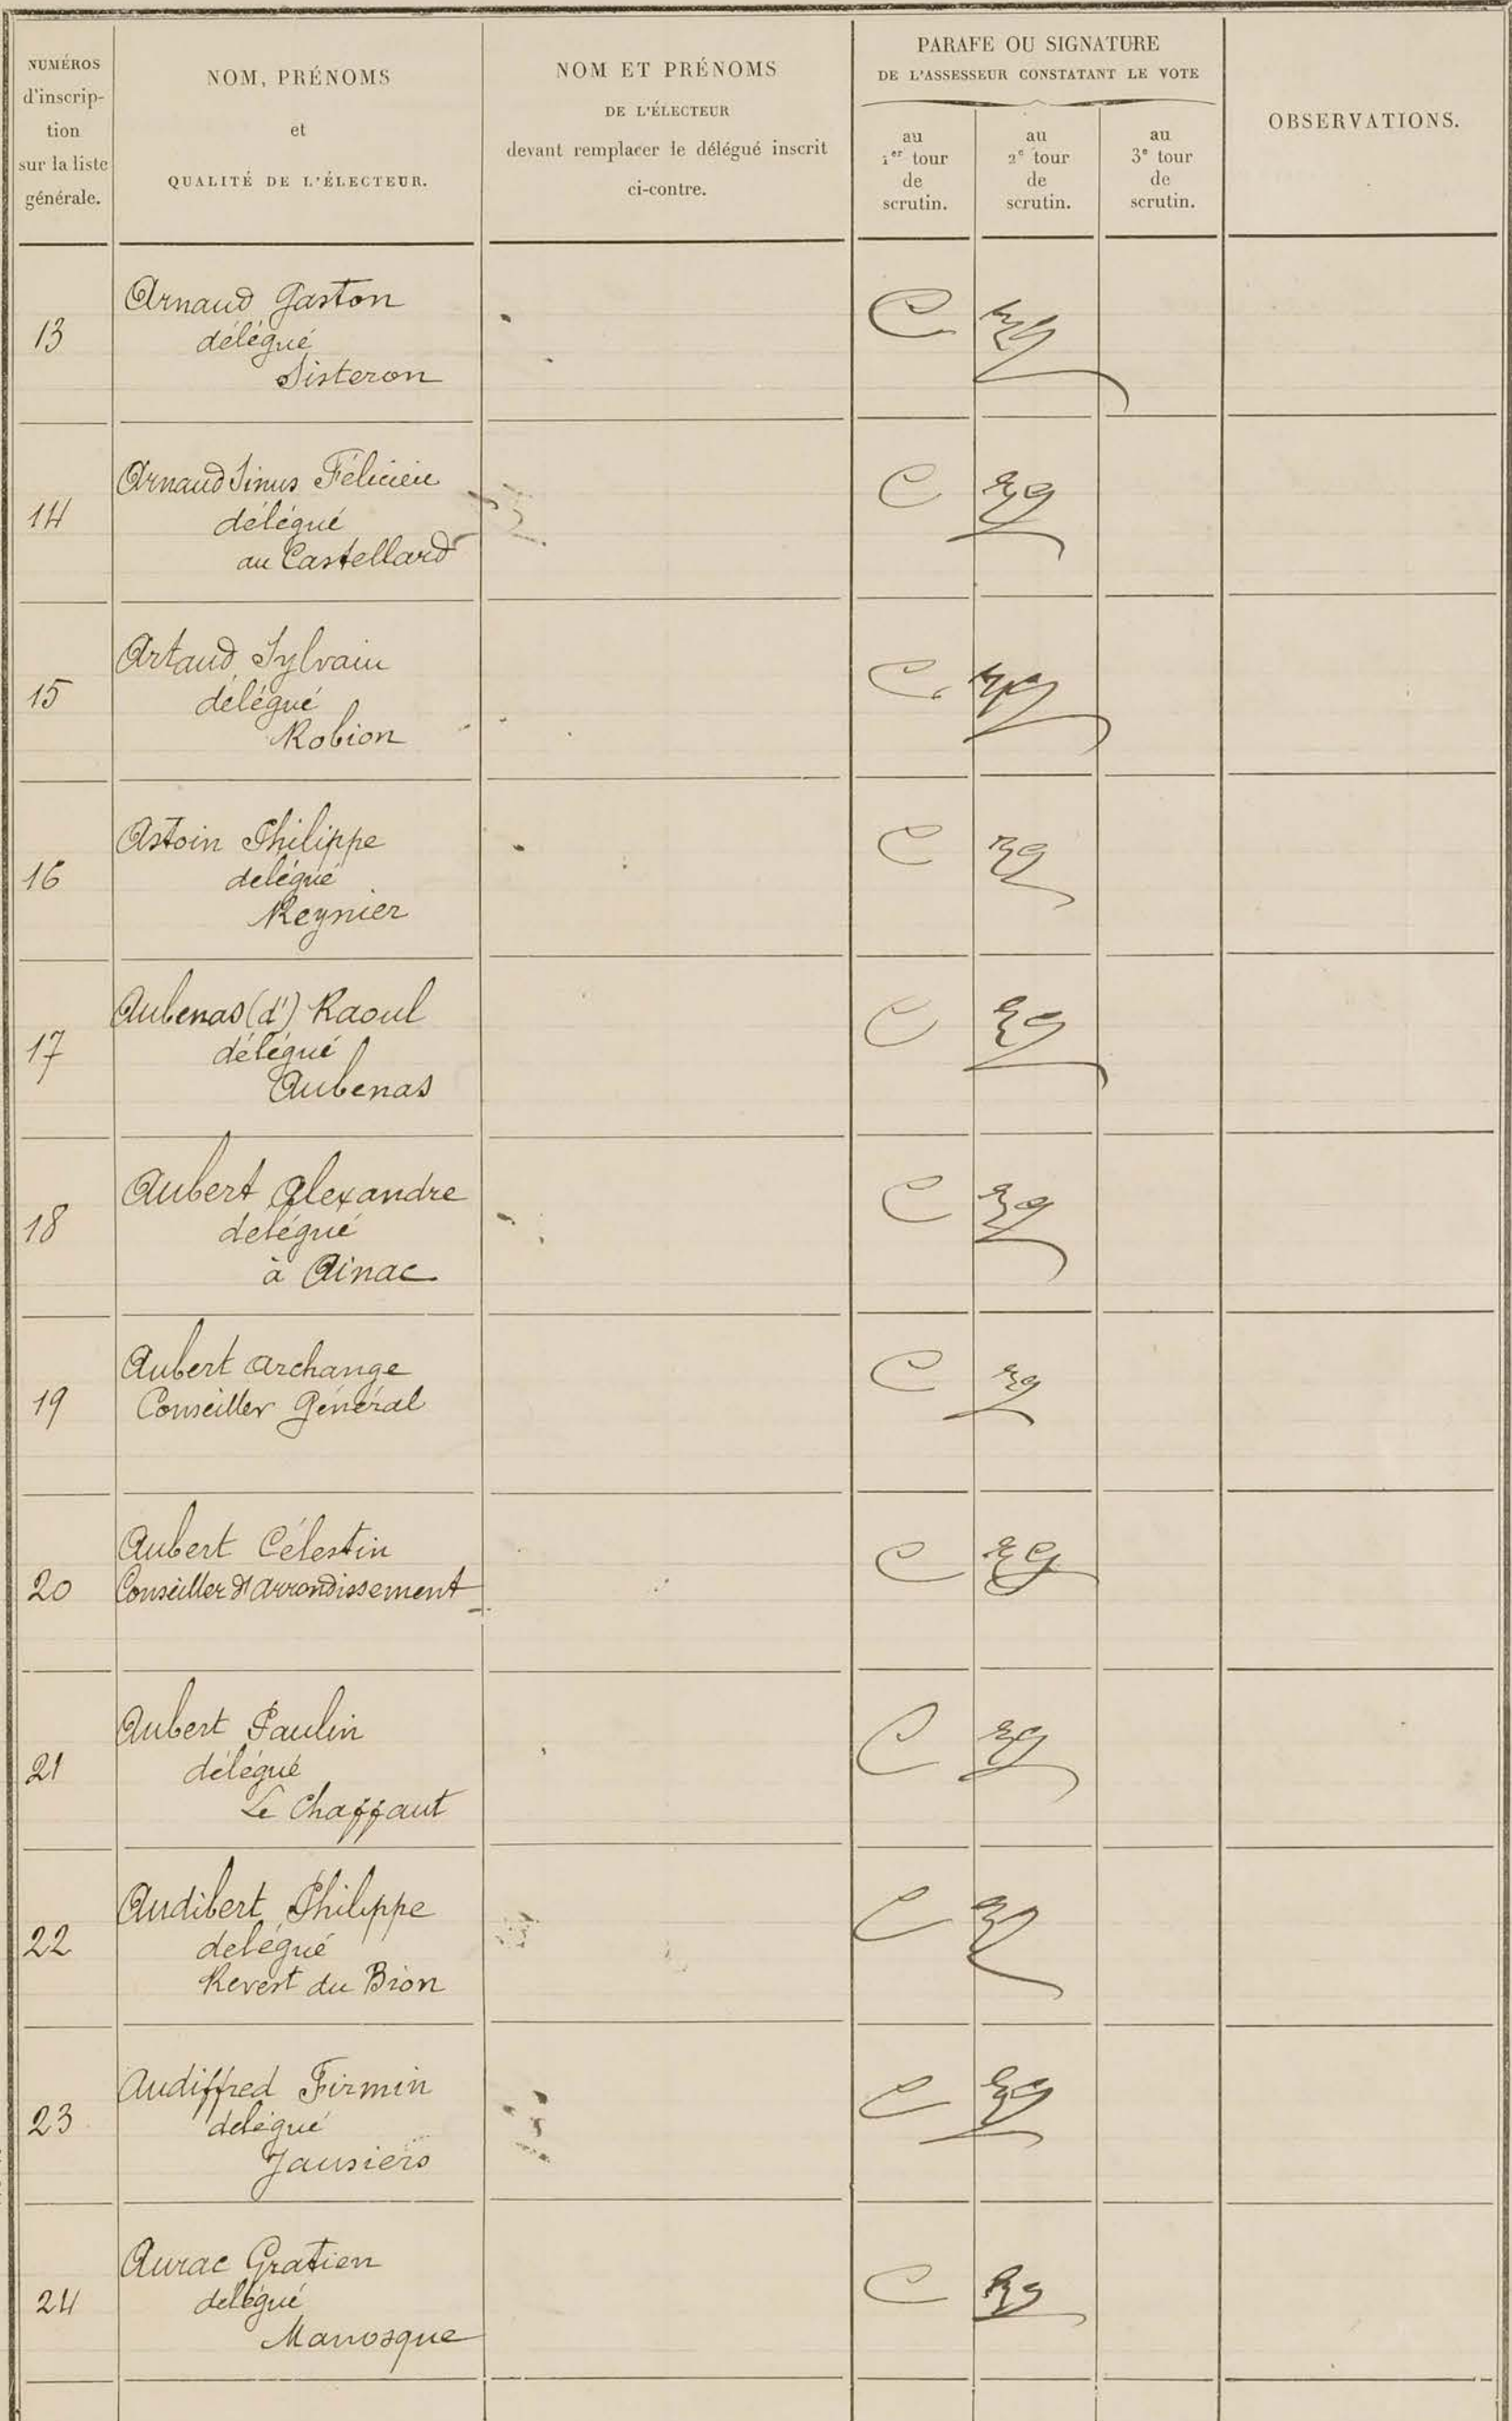 NUMÉROS
d'inscrip-
tion
sur la liste
générale.
NOM, PRÉNOMS
et
QUALITÉ DE L'ÉLECTEUR.
NOM ET PRÉNOMS
DE L'ÉLECTEUR
devant remplacer le délégué inscrit
ci-contre.
PARAFE OU SIGNATURE
DE L'ASSESSEUR CONSTATANT LE VOTE
au
1er tour
de
scrutin.
au
2e tour
de
scrutin.
au
3e tour
de
scrutin.
OBSERVATIONS.
13
Arnaud Gaston
délégué
Sisteron
C
14
Arnaud Sinus Félicien
délégué
au Castellard
C
15
Artaud Sylvain
délégué
Robion
C
16
Astoin Philippe
delégué
Reynier
C
17
Aubenas (d') Raoul
délégué
Aubenas
C
18
Aubert Alexandre
delégué
à Ainac
C
19
Aubert Archange
Conseiller Général
C
20
Aubert Célestin
Conseiller d'arrondissement
C
21
Aubert Paulin
délégué
Le Chaffaut
C
22
Audibert Philippe
delégué
Revest du Bion
C
23
Audiffred Firmin
délégué
Jausiers
C
24
Aurac Gratien
délégué
Manosque
C